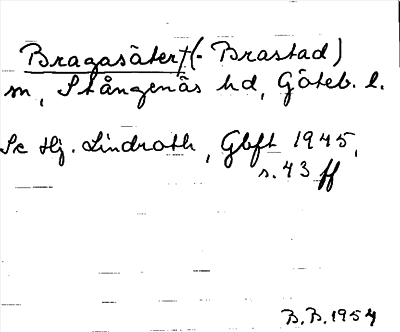 Bragasäter† (- Brastad)
sn, Stångenäs hd, Göteb. l.
Se Hj. Lindroth, Gbft 1945,
s. 43 ff
B.B. 1954